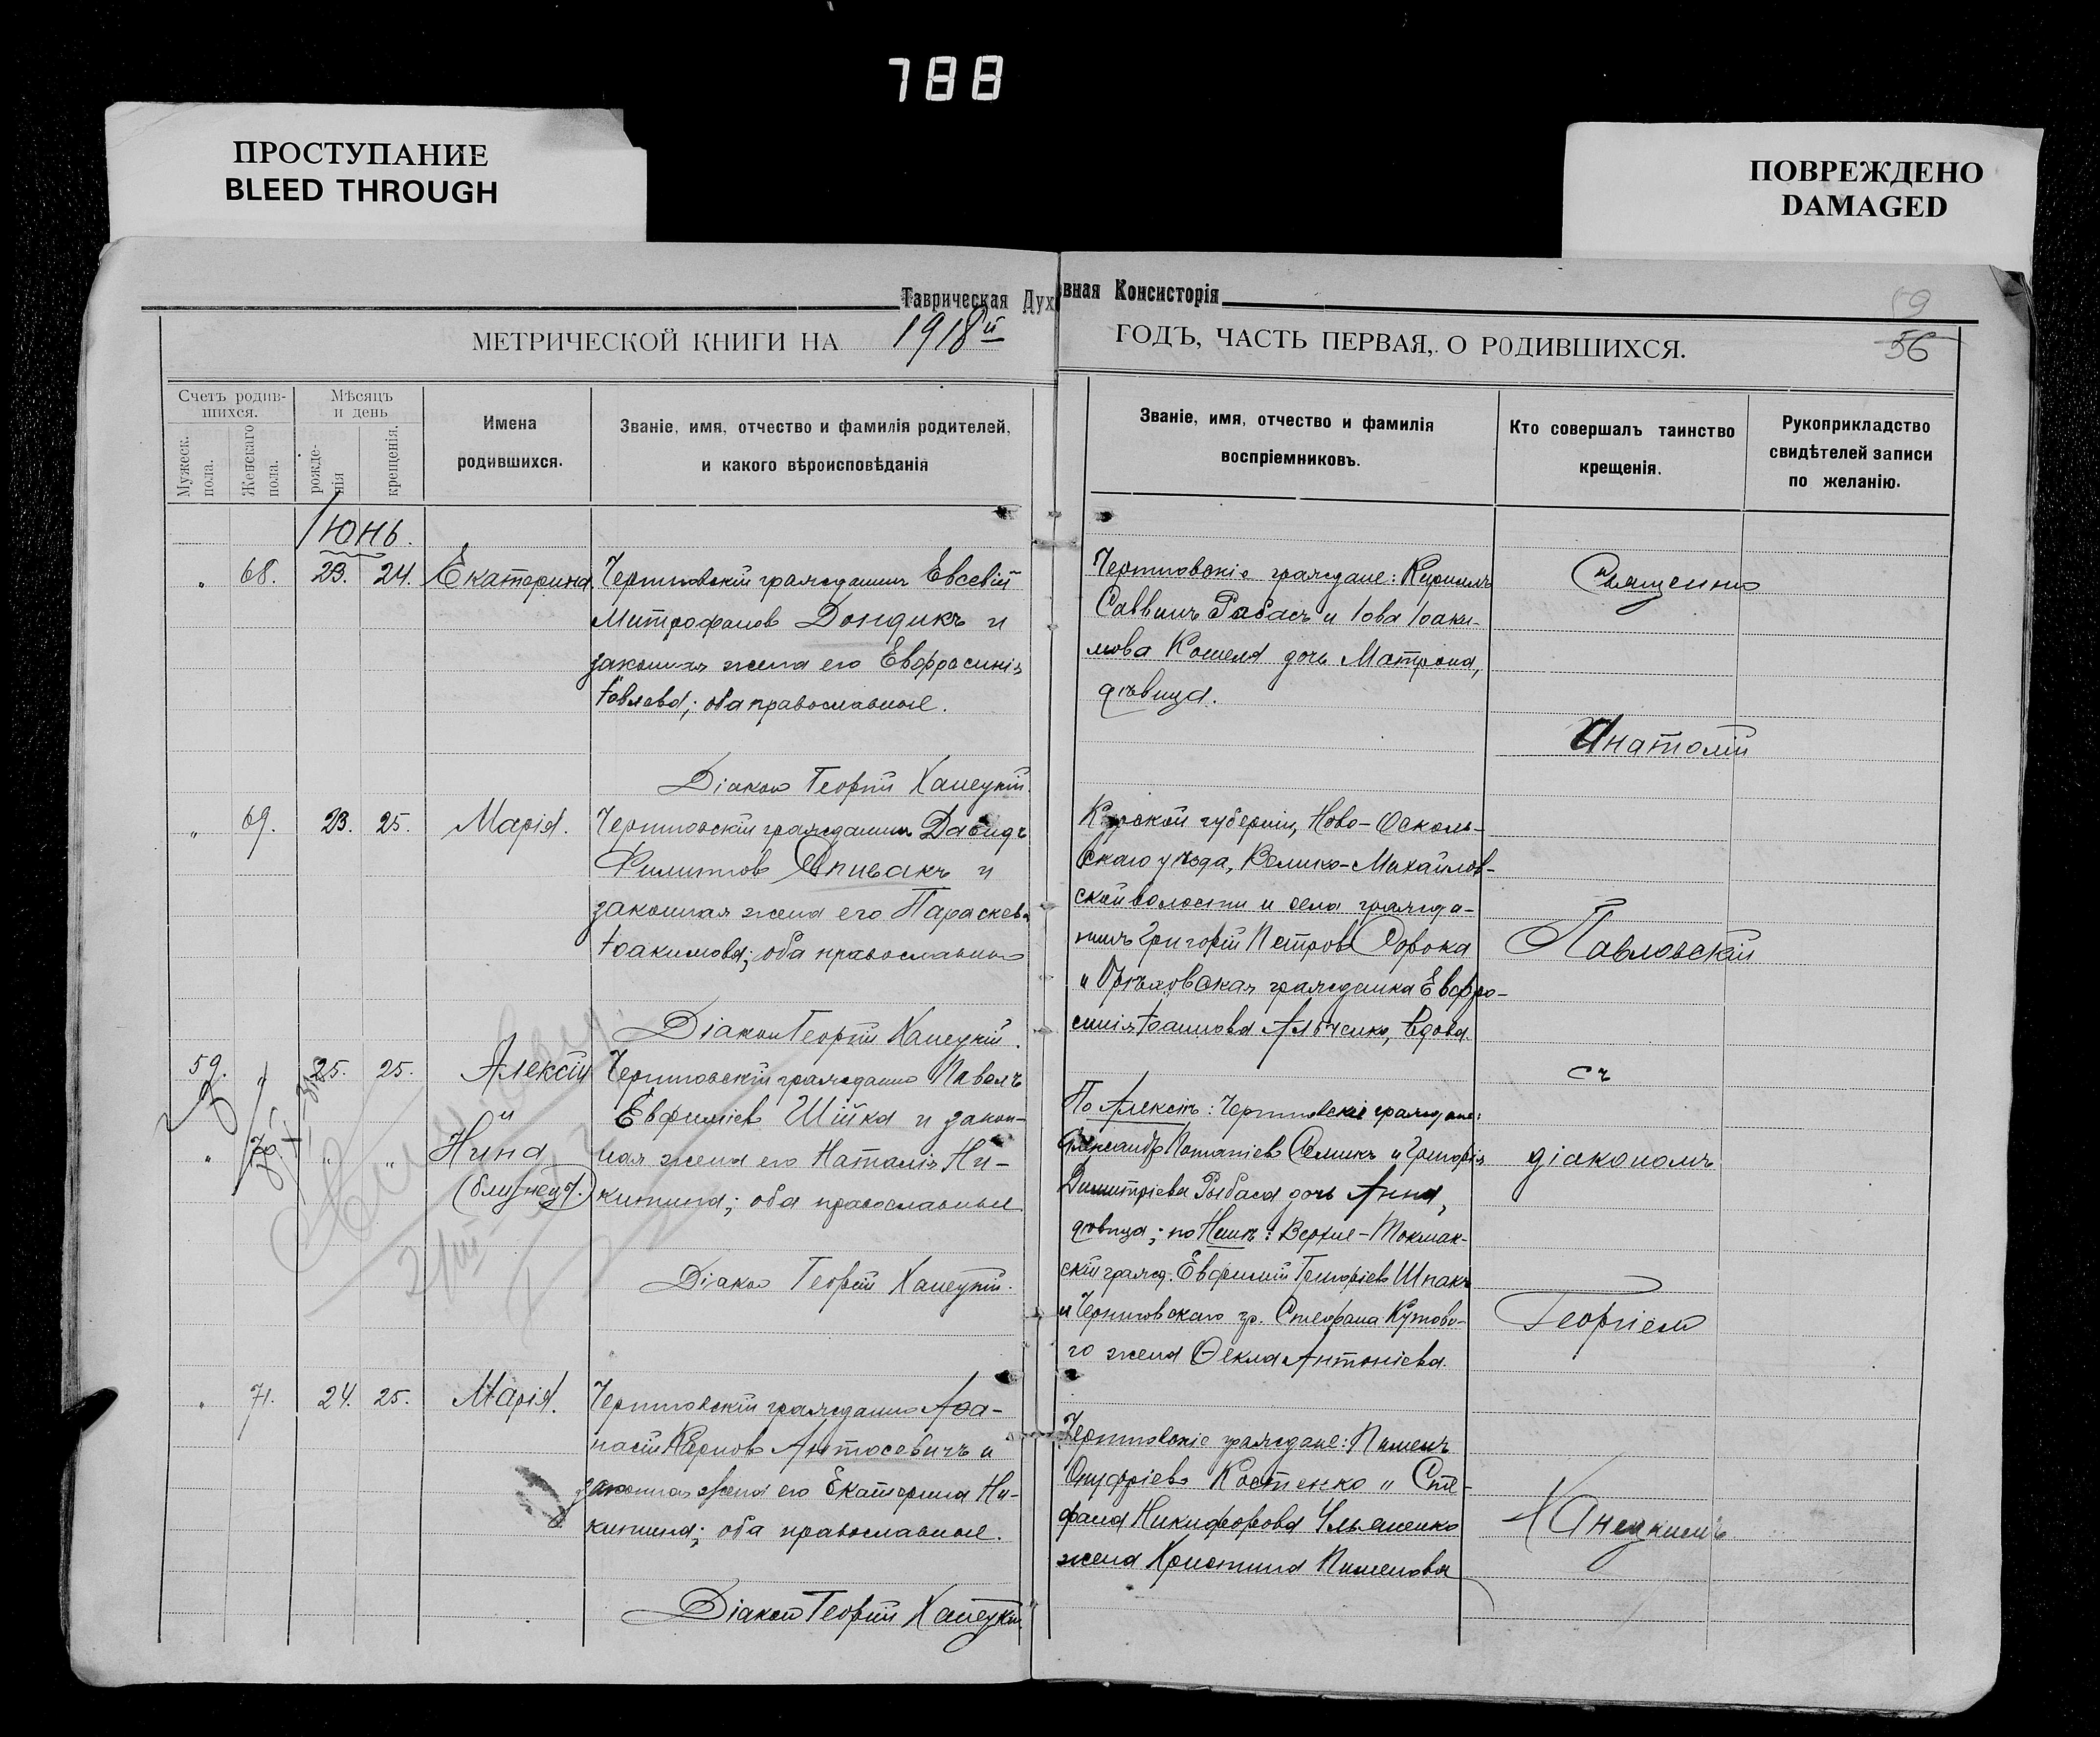 788
ПРОСТУПАНИЕ
BLEED THROUGH
ПОВРЕЖДЕНО
DAMAGED
Таврическая Духовная Консисторія
59
56
МЕТРИЧЕСКОЙ КНИГИ НА 1918й ГОДЪ, ЧАСТЬ ПЕРВАЯ, О РОДИВШИХСЯ.
Счетъ родив-
шихся.
Мужеск.
пола.
Женскаго
пола.
Мѣсяцъ
и день
рожде-
нія
крещенія.
Имена
родившихся.
Званіе, имя, отчество и фамилія родителей,
и какого вѣроисповѣданія
Званіе, имя, отчество и фамилія
воспріемниковъ.
Кто совершалъ таинство
крещенія.
Рукоприкладство
свидѣтелей записи
по желанію.
Іюнь.
" 68. 23. 24. Екатерина. Черниговскій гражданинъ Евсевій
Митрофановъ Дондикъ и
законная жена его Евфросинія
Іовлева; оба православные.
Діаконъ Георгій Ханецкій
Черниговскіе граждане: Кириллъ
Саввинъ Рабасъ и Іова Іоаки-
мова Кошеля дочь Матрона,
дѣвица.
" 69. 23. 25. Марія. Черниговскій гражданинъ Давидъ
Филипповъ Спивакъ и
законная жена его Параскева
Іоакимова; оба православные
Діаконъ Георгій Ханецкій.
Курской губерніи, Ново-Осколь-
скаго уѣзда, Велико-Михайлов-
ской волости и села гражда-
нинъ Григорій Петровъ Сорока
и Орѣховская гражданка Евфро-
синія Іоаннова вдова.
59. " 25. 25. Алексій Черниговскій гражданинъ Павелъ
и Евфиміевъ Шійка и закон-
" 70. " " Нина ная жена его Наталія Ни-
(близнецы.) китина; оба православные
Діаконъ Георгій Ханецкій.
По Алексіѣ: Черниговскіе граждане:
Александръ Потапіевъ Семикъ и Григорія
Димитріева Рыбаса дочь Анна,
дѣвица; по Нинѣ: Верхне-Токмак-
скій гражд. Евфимій Григоріевъ Шпакъ
и Черниговскаго гр. Стефана Кутово-
го жена Ѳекла Антоніева.
" 71. 24. 25. Марія. Черниговскій гражданинъ Аѳа-
насій Карповъ Антосевичъ и
законная жена его Екатерина Ни-
китина; оба православные.
Діаконъ Георгій Ханецкій
Черниговскіе граждане: Пименъ
Онуфріевъ Костенко и Сте-
фана Никифорова Ульяненко
жена Христина Пименова
Священникъ
Анатолій
Павловскій
съ
діакономъ
Георгіемъ
Ханецкимъ